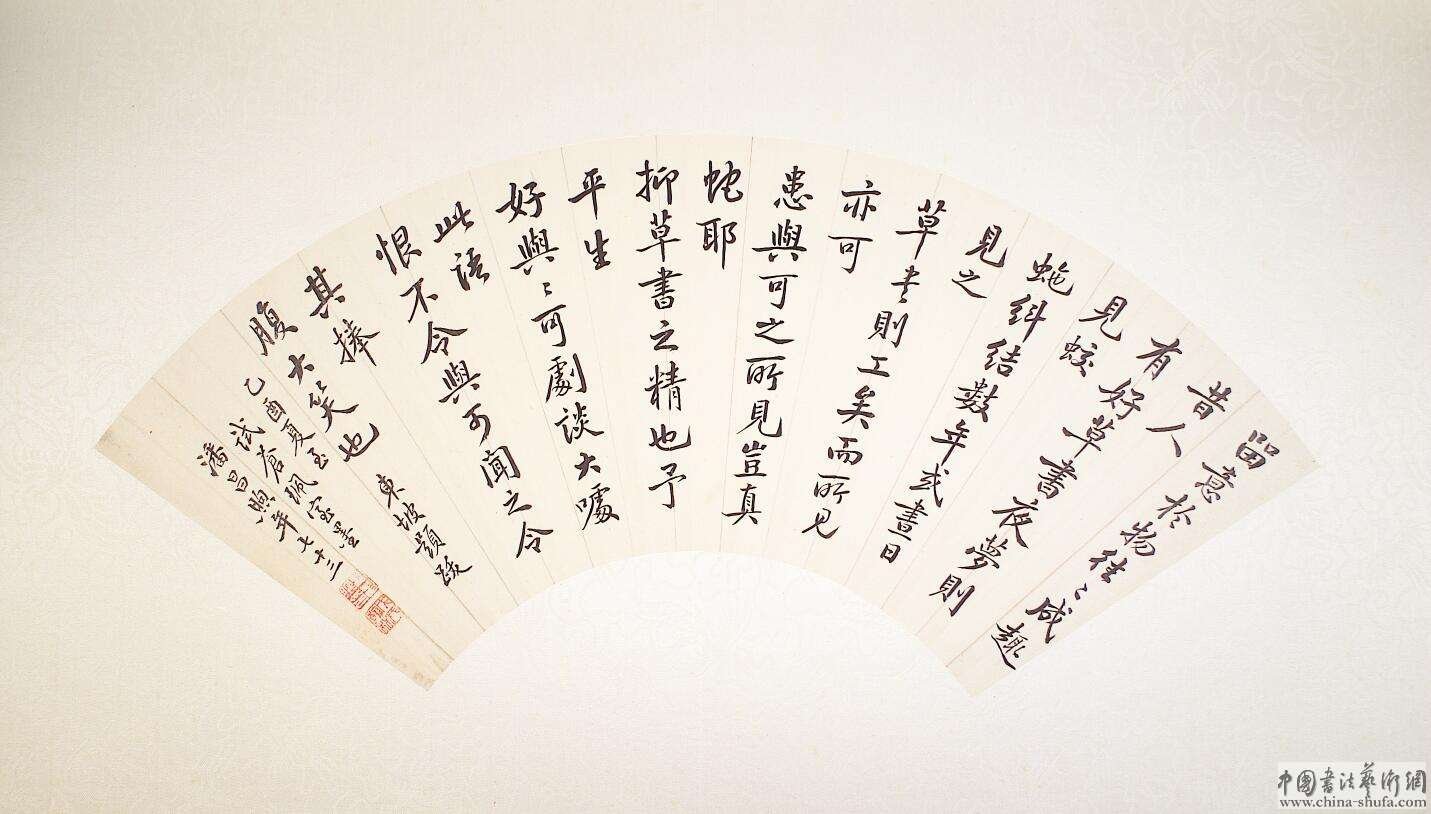 留意於物往〻成趣
昔人
有好草書夜夢則
見蛟
蛇糾結数年或晝日
見之
草書則工矣而所見
亦可
患與可之所見豈真
蛇耶
抑草書之精也予
平生
好與〻可劇談大噱
此語
恨不令與可聞之令
其捧
腹大笑也 東坡題跋
乙酉夏至
試蒼珮室墨
潘昌煦年七十三
中國書法藝術網
www.china-shufa.com